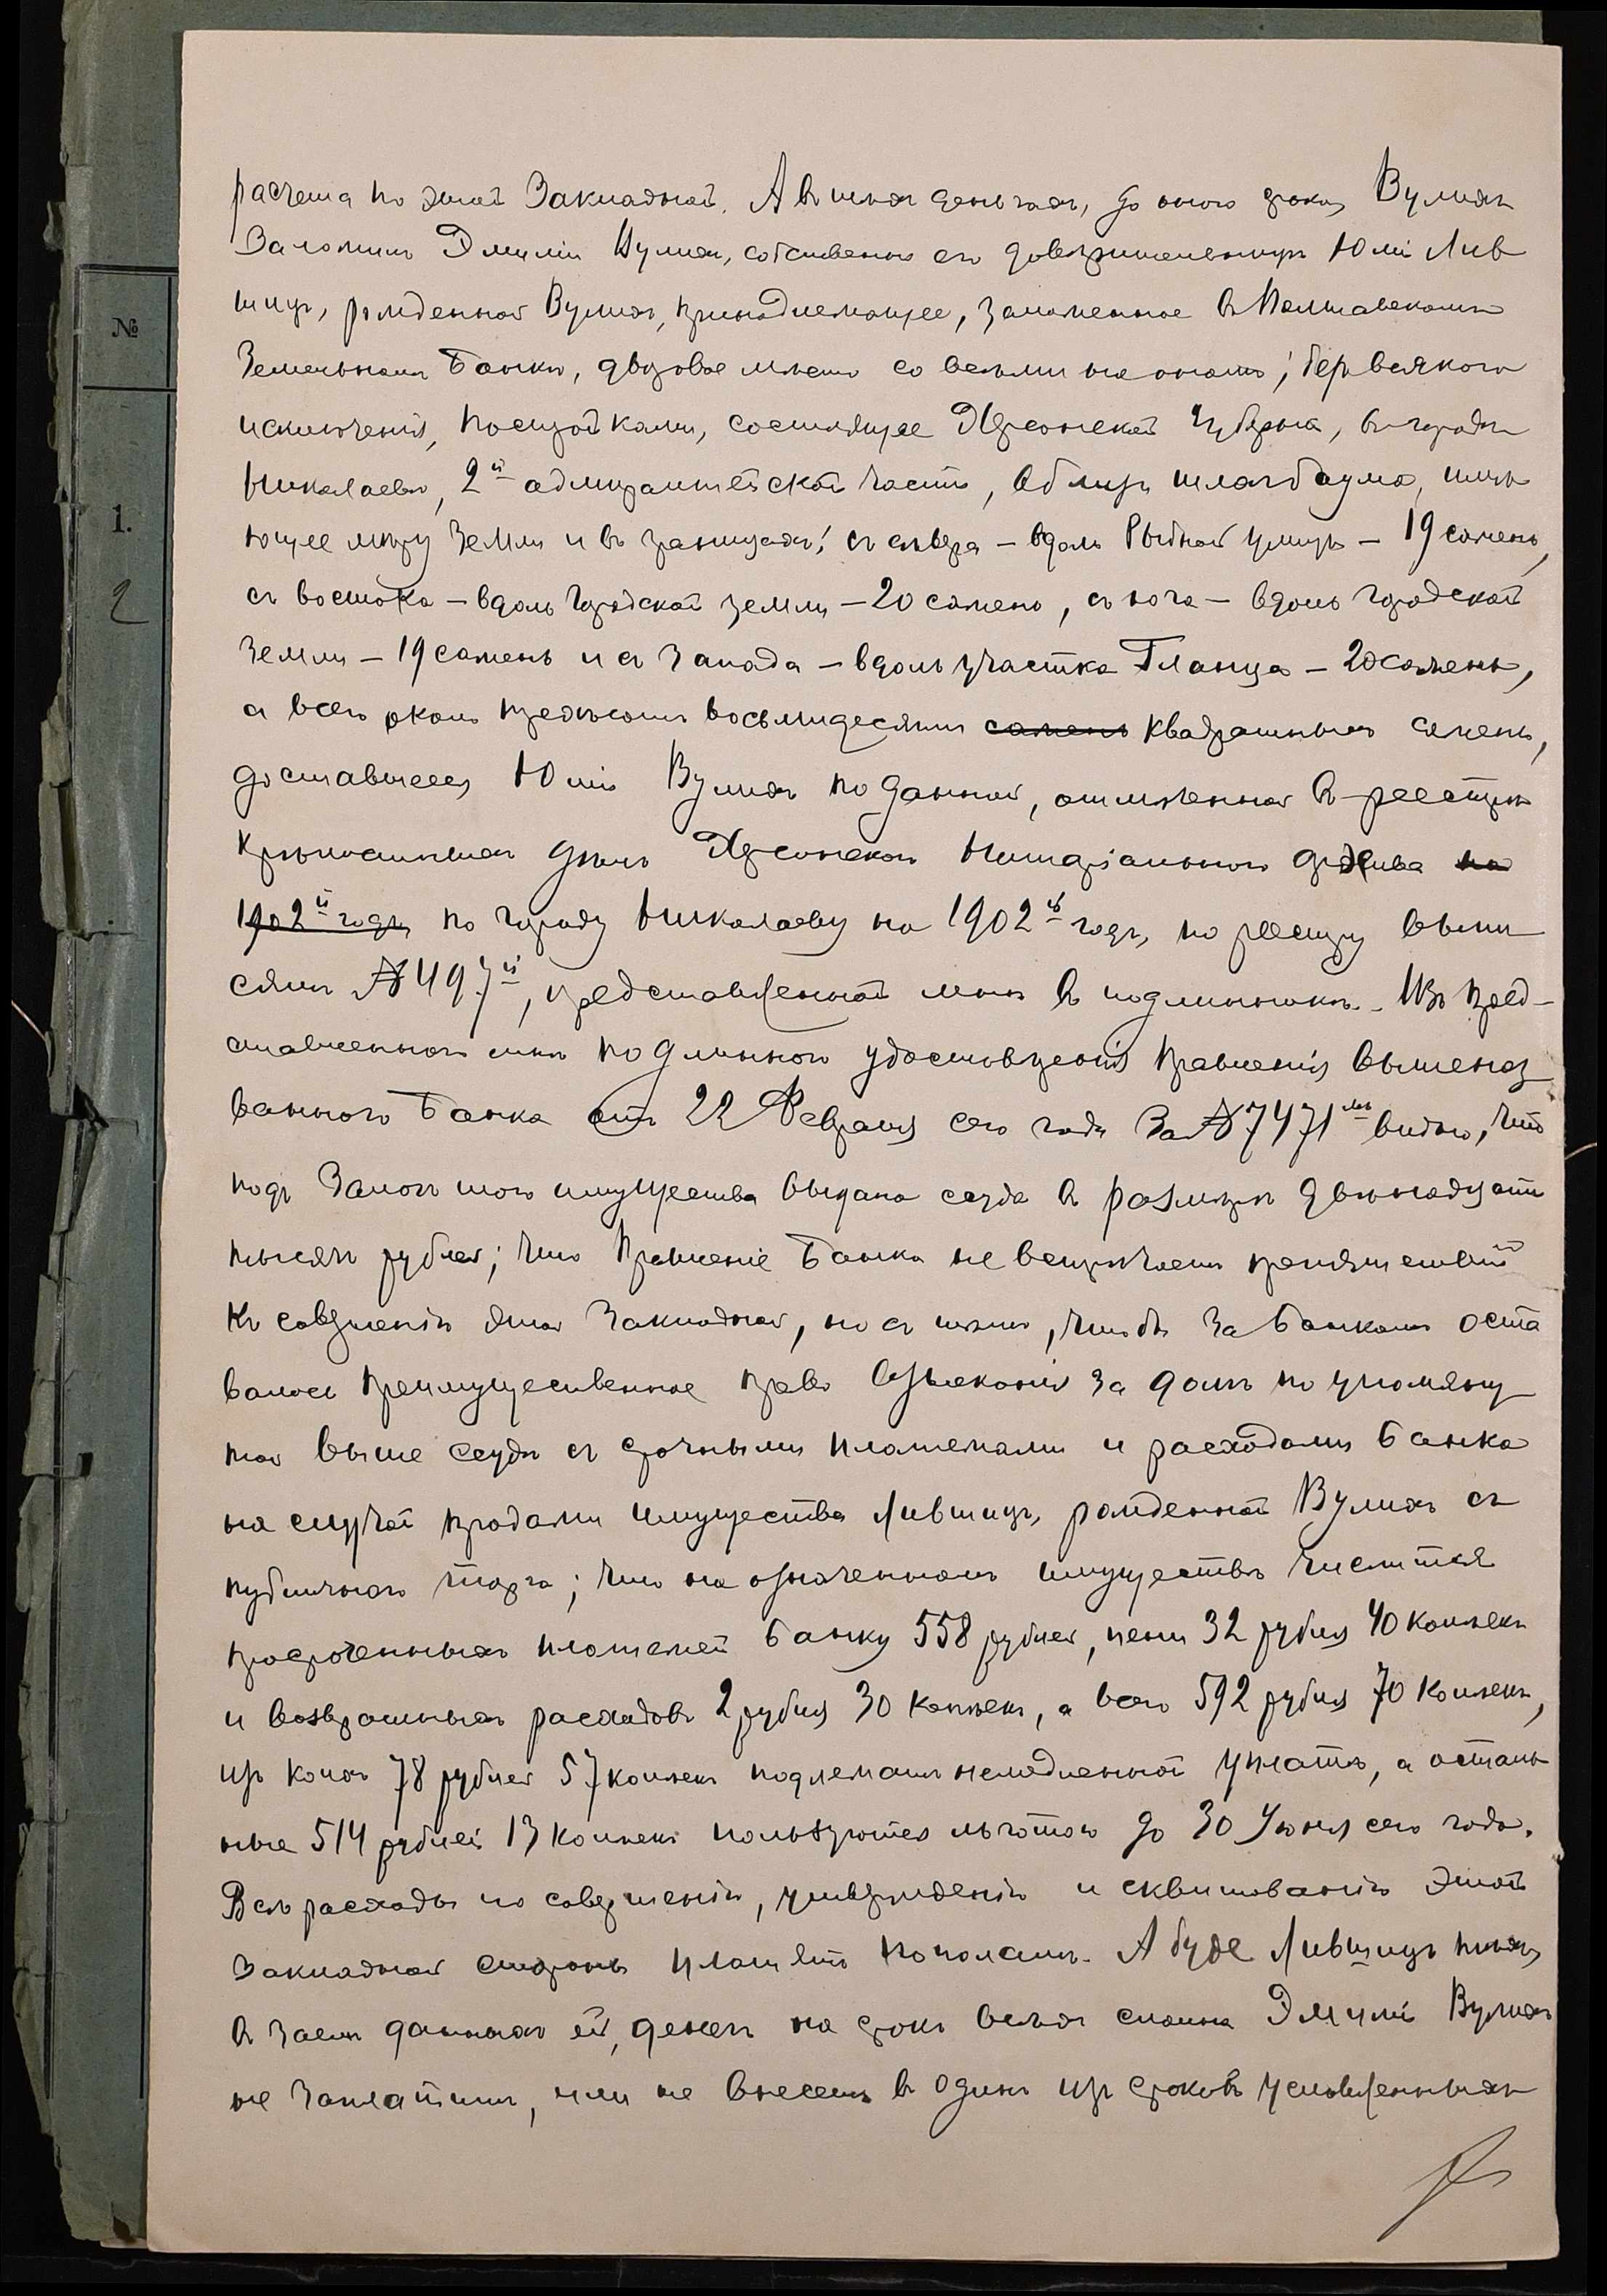 №
1.
2
расчета по этой Закладной. А въ тѣхъ деньгахъ, до оного срока, Вулихъ
Заложилъ Эмиліи Вулихъ, собственно его довѣрительницѣ Юліи Лив
шицъ, рожденной Вулихъ, принадлежащее, заложенное въ Полтавскомъ
Земельномъ Банкѣ, дворовое мѣсто со всѣми на ономъ, безъ всякаго
исключенія, постройками, состоящее Херсонской губерніи, въ городѣ
Николаевѣ, 2й адмиралтейской части, вблизи шлагбаума, имѣ
ющее мѣру земли и въ границахъ: съ сѣвера – вдоль Рыбной улицы – 19 сажень,
съ востока – вдоль городской земли – 20 сажень, съ юга – вдоль городской
земли – 19 сажень и съ запада – вдоль участка Гланца – 20 сажень,
а всего около трехсотъ восьмидесяти сажень квадратныхъ сажень,
доставшееся Юліи Вулихъ по данной, отмѣченной въ реестрѣ
крѣпостныхъ дѣлъ Херсонскаго Нотаріальнаго архива на
1902й годъ, по городу Николаеву на 1902й годъ, по реестру
№ 497й, представленной мнѣ въ подлинникѣ. Изъ пред-
ставленнаго мнѣ подлиннаго удостовѣренія Правленія вышеназ
ваннаго Банка отъ 22 Февраля сего года за № 7471мъ видно, что
подъ залогъ того имущества выдана ссуда въ размѣрѣ двѣнадцати
тысячъ рублей; что Правленіе Банка не встрѣчаетъ препятствій
къ совершенію этой Закладной, но съ тѣмъ, чтобъ за Банкомъ оста
валось преимущественное право взысканія за долгъ по упомяну
той выше ссудѣ съ срочными платежами и расходами Банка
на случай продажи имущества Лившицъ, рожденной Вулихъ съ
публичнаго торга; что на означенномъ имуществѣ числится
просроченныхъ платежей Банку 558 рублей, пени 32 рубля 40 копѣекъ
и возвратныхъ расходовъ 2 рубля 30 копѣекъ, а всего 592 рубля 70 копѣекъ,
изъ коихъ 78 рублей 57 копѣекъ подлежатъ немедленной уплатѣ, а осталь
ные 514 рублей 13 копѣекъ пользуются льготою до 30 Іюня сего года.
Всѣ расходы по совершенію, утвержденію и сквитованію этой
Закладной стороны платятъ пополамъ. А буде Лившицъ тѣхъ,
въ заемъ данныхъ ей, денегъ на срокъ всѣхъ сполна Эмиліи Вулихъ
не заплатитъ, или не внесетъ въ одинъ изъ сроковъ условленныхъ